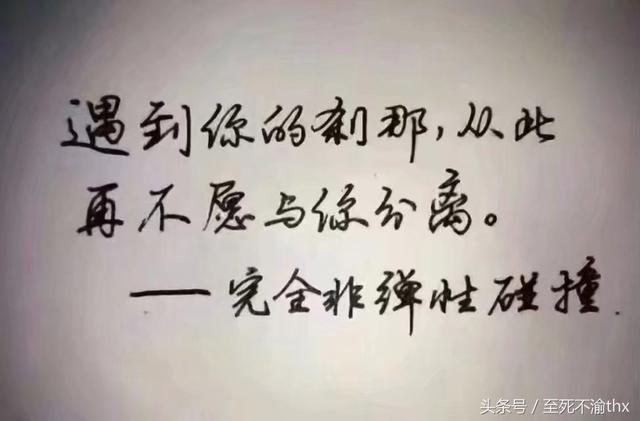 遇到你的刹那,从此
再不愿与你分离。
——完全非弹性碰撞.
头条号／至死不渝thx